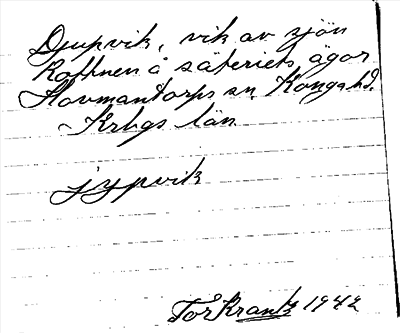 Djupvik, vik av sjön
Rottnen å säteriets ägor
Hovmantorps sn. Konga hd.
Krbgs län
jypvik
Tor Krantz 1942